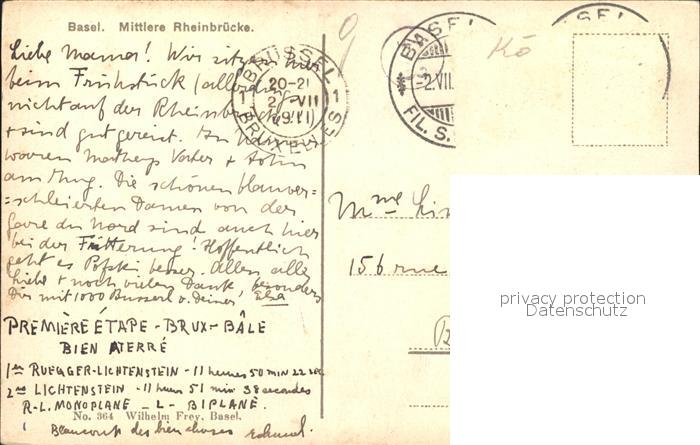 Basel. Mittlere Rheinbrücke.
Liebe Mama! Wir sitzen hier
beim Frühstück (allerdings
nicht auf der Rheinbrücke)
+ sind gut gereist. In
waren Vater + Sohn
am Zug. Die schönen blauver=
=schleierten Damen von der
Gare du Nord sind auch hier
bei der Fütterung! Hoffentlich
geht es besser. Allen alles
Liebe + noch vielen Dank, besonders
Dir mit 1000 Busserl v. Deiner Elsa
PREMIÈRE ÉTAPE - BRUX - BÂLE
BIEN ATERRÉ
1er RUEGGER-LICHTENSTEIN - 11 heures 50 min 22 sec
2me LICHTENSTEIN - 11 heures 51 min 38 secondes
R-L. MONOPLANE - L - BIPLANE.
No. 364 Wilhelm Frey, Basel.
Beaucoup des bien choses
BRÜSSEL
1 20-21 1
2 VII
1911
BRUXELLES
BASEL
2.VII
FIL. S.
BASEL
Kō
Mme
156 rue
privacy protection
Datenschutz